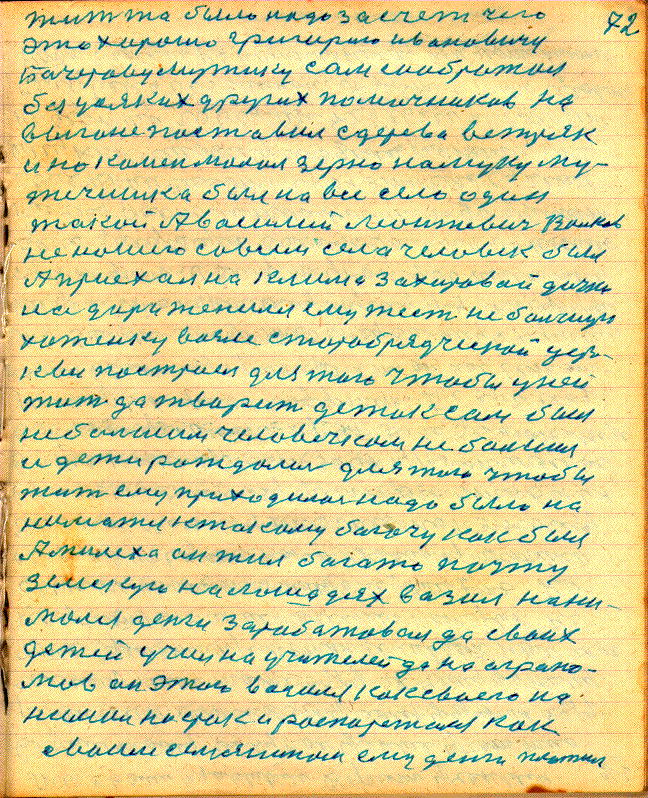 72
жит та было надо за счет чего
это хорошо григорию ивановичу
Бачерову мужику сам соображал
без усяких других помичников на
выгоне поставил с дерева ветряк
и но камен молол зерно на муку му-
жичишка был на все село один
такой А василий леонтевич Волков
не нашего совсем села человек был
А приехал на клима захаровай дочке
на дари женился ему тест не большую
хатенку возле старобрядческой церк-
кви построил для того чтобы у ней
жит да тварит деток сам был
небольшим человечком не большия
и дети рождалис для того чтобы
жит ему приходилос надо было на
ниматся к такому богачу как был
Амилеха он жил багато почту
земскую на лошадях вазил нани-
мался денги зарабатовал да своих
детей учил на учителей да на аграно-
мов он этого василя как своего на
нимал на срок и роспоряжался как
своим семянином ему денги платил